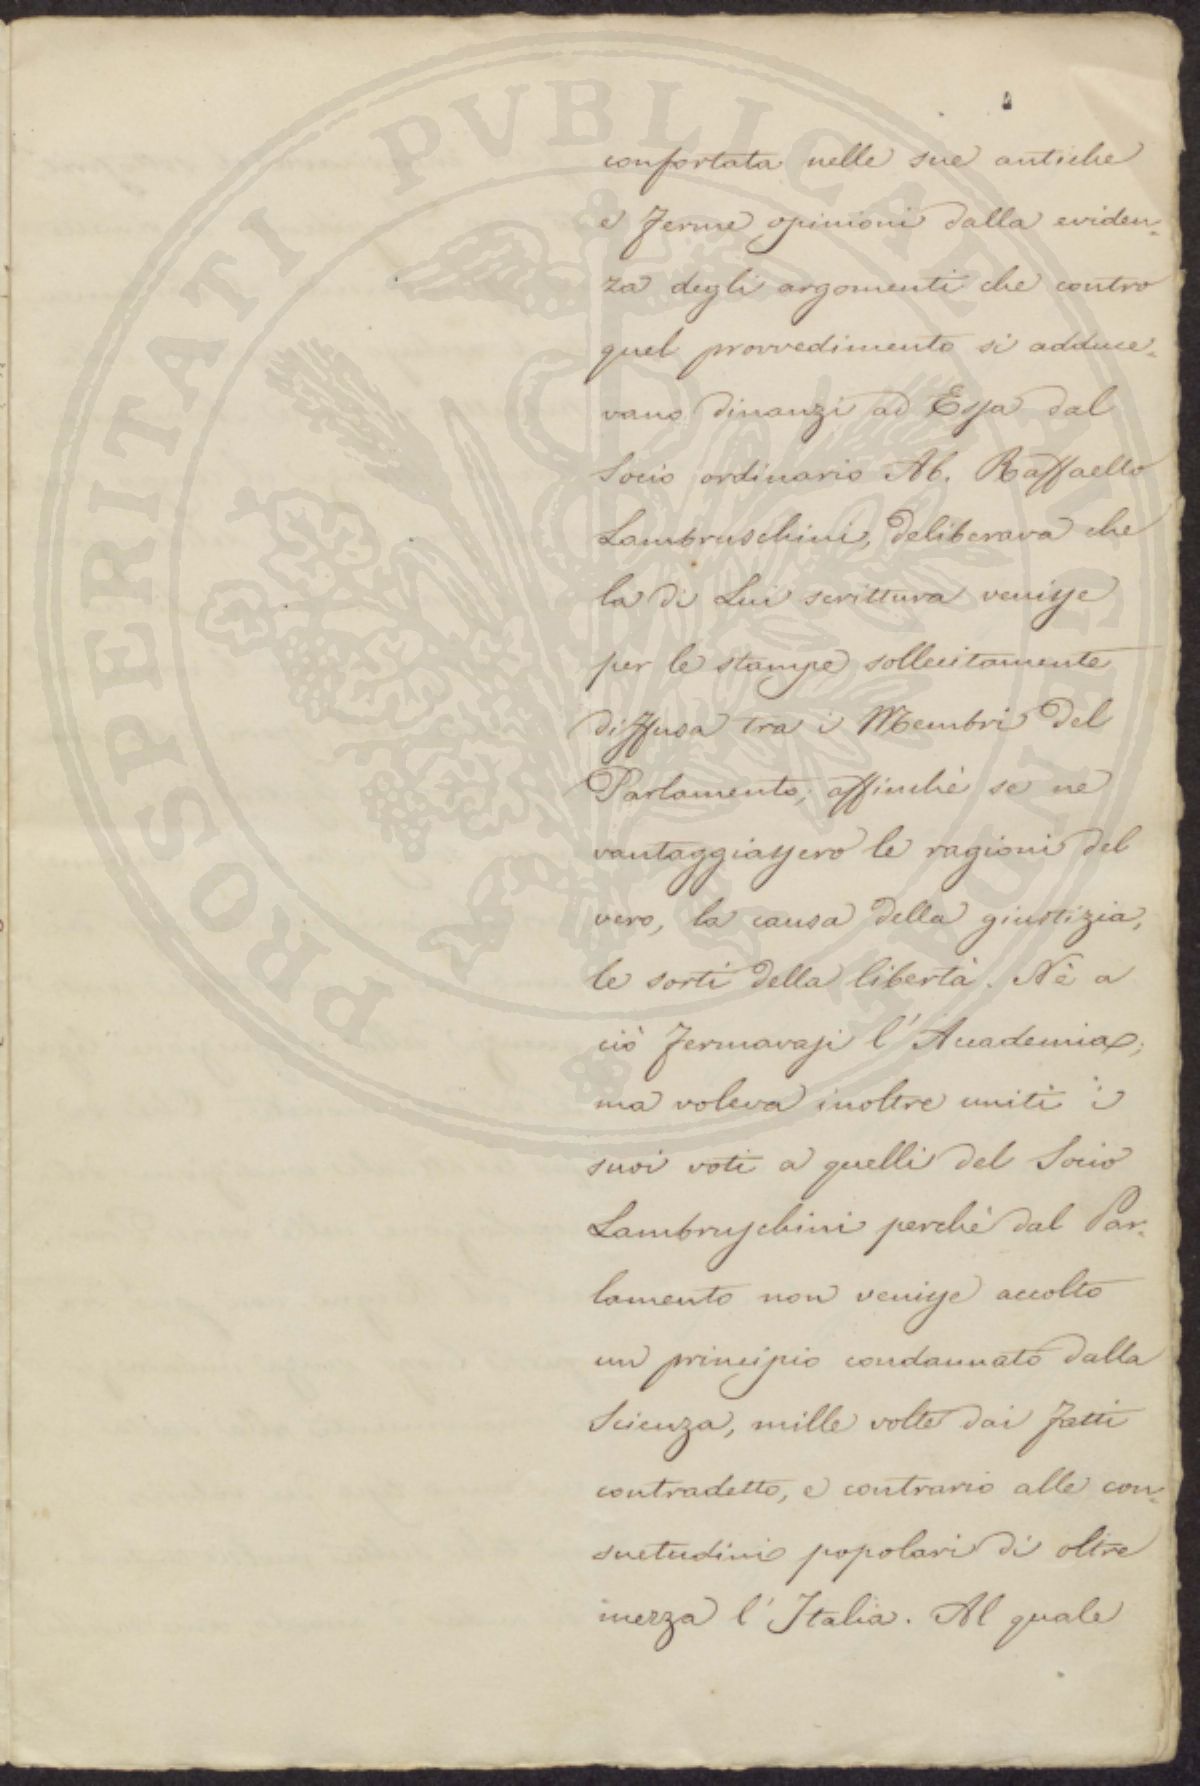 confortata nelle sue antiche
e ferme opinioni dalla eviden-
za degli argomenti che contro
quel provvedimento si adduce-
vano dinanzi ad Essa dal
Socio ordinario Ab. Raffaello
Lambruschini, deliberava che
la di Lui scrittura venisse
per le stampe sollecitamente
diffusa tra i Membri del
Parlamento, affinchè se ne
vantaggiassero le ragioni del
vero, la causa della giustizia,
le sorti della libertà. Nè a
ciò fermavasi l'Accademia;
ma voleva inoltre uniti i
suoi voti a quelli del Socio
Lambruschini perchè dal Par-
lamento non venisse accolto
un principio condannato dalla
Scienza, mille volte dai fatti
contradetto, e contrario alle con-
suetudini popolari di oltre
mezza l'Italia. Al quale
PROSPERITATI PVBLICAE AVGENDAE